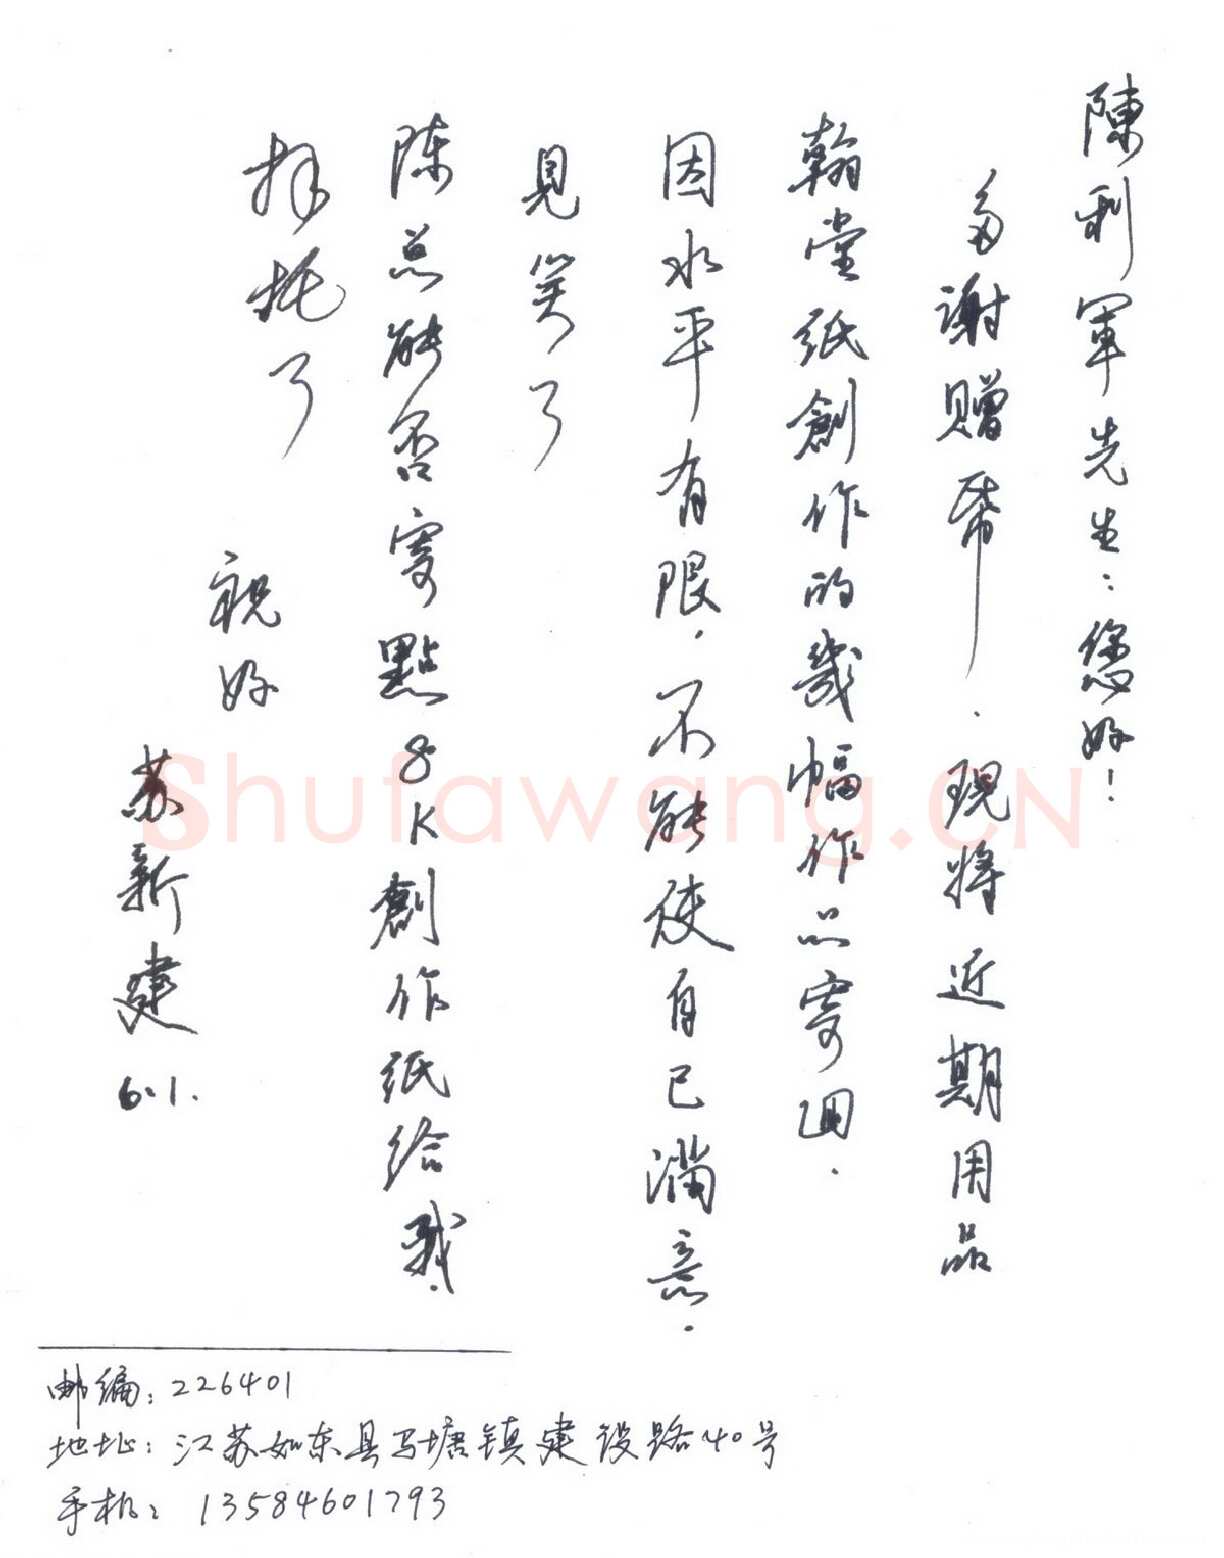 陳利軍先生：您好！
多謝贈帋．現將近期用品
翰堂紙創作的幾幅作品寄回．
因水平有限．不能使自己滿意．
見笑了
陈总能否寄點8K創作紙给我．
拜托了
祝好
苏新建
6.1.
邮编：226401
地址：江苏如东县马塘镇建设路40号
手机：13584601793
Shufawang.CN